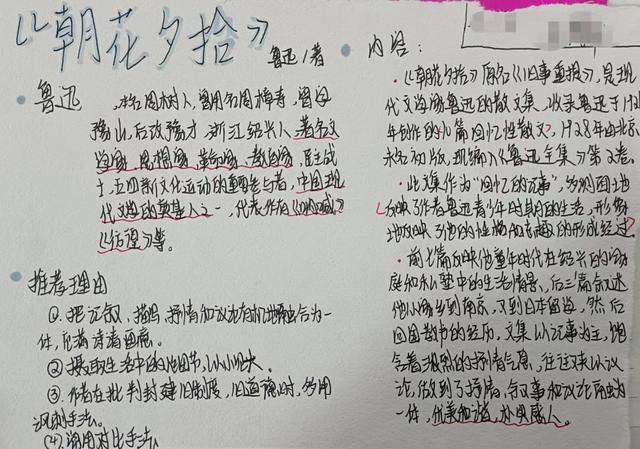 《朝花夕拾》 鲁迅/著
鲁迅
本名周树人,曾用名周樟寿,曾字
豫山,后改豫才,浙江绍兴人,著名文
学家、思想家、革命家、教育家、民主战
士,五四新文化运动的重要参与者,中国现
代文学的奠基人之一,代表作有《呐喊》
《彷徨》等。
推荐理由
①把记叙、描写、抒情和议论有机地融合为一
体,充满诗情画意。
②摄取生活中的小细节,以小见大。
③作者在批判封建旧制度、旧道德时,多用
讽刺手法。
(4)常用对比手法
内容:
·《朝花夕拾》原名《旧事重提》,是现
代文学家鲁迅的散文集,收录鲁迅于1926
年创作的10篇回忆性散文,1928年由北京
未名初版,现编入《鲁迅全集》第2卷。
·此文集作为“回忆的记事”,多侧面地
反映了作者鲁迅青少年时期的生活,形象
地反映了他的性格和志趣的形成经过。
·前七篇反映他童年时代在绍兴的家
庭和私塾中的生活情景,后三篇叙述
他从家乡到南京,又到日本留学,然后
回国教书的经历,文集以记事为主,饱
含着浓烈的抒情气息,往往又夹以议
论,做到了抒情、叙事和议论融为
一体,优美和谐,朴实感人。